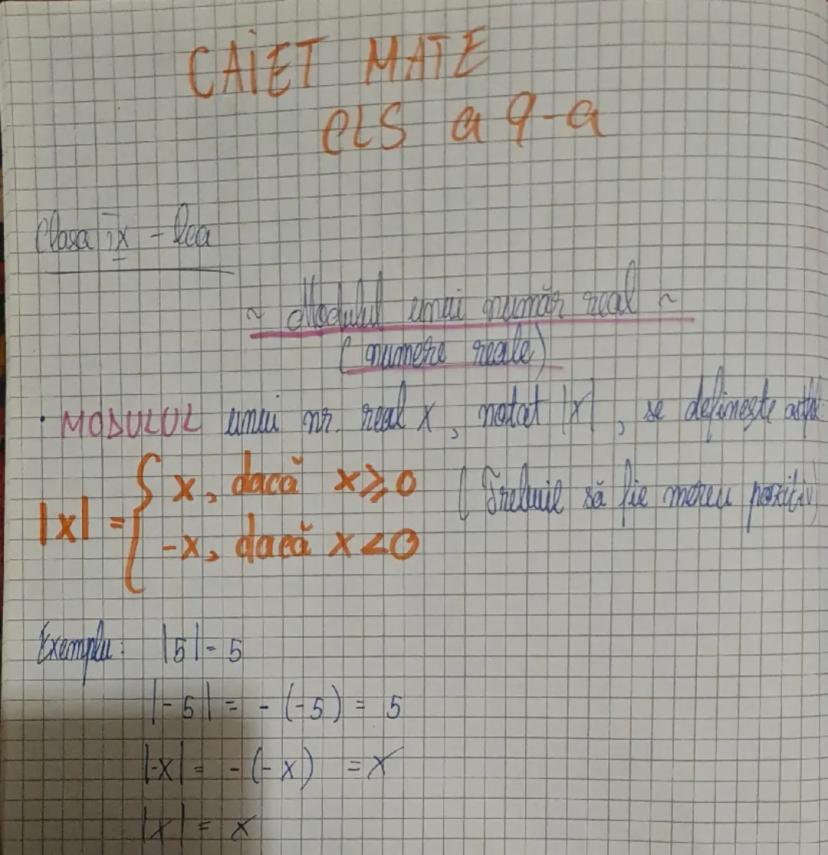 CAIET MATE
CLS a 9-a
Clasa IX - lea
~ Modulul unui număr real ~
(numere reale)
· MODULUL unui nr. real x, notat |x|, se definește astfel
|x| = { x, dacă x ≥ 0 (Trebuie să fie mereu pozitiv)
-x, dacă x < 0
Exemplu: |5| = 5
|-5| = -(-5) = 5
|-x| = -(-x) = x
|x| = x